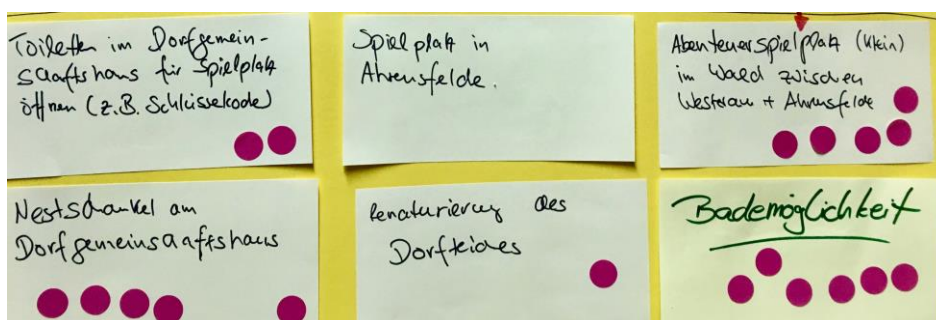 Toiletten im Dorfgemein-
schaftshaus für Spielplatz
öffnen (z.B. Schlüsselkode)
Spielplatz in
Ahrensfelde.
Abenteuerspielplatz (klein)
im Wald zwischen
Westerau + Ahrensfelde
Nestschaukel am
Dorfgemeinschaftshaus
Renaturierung des
Dorfteiches
Bademöglichkeit